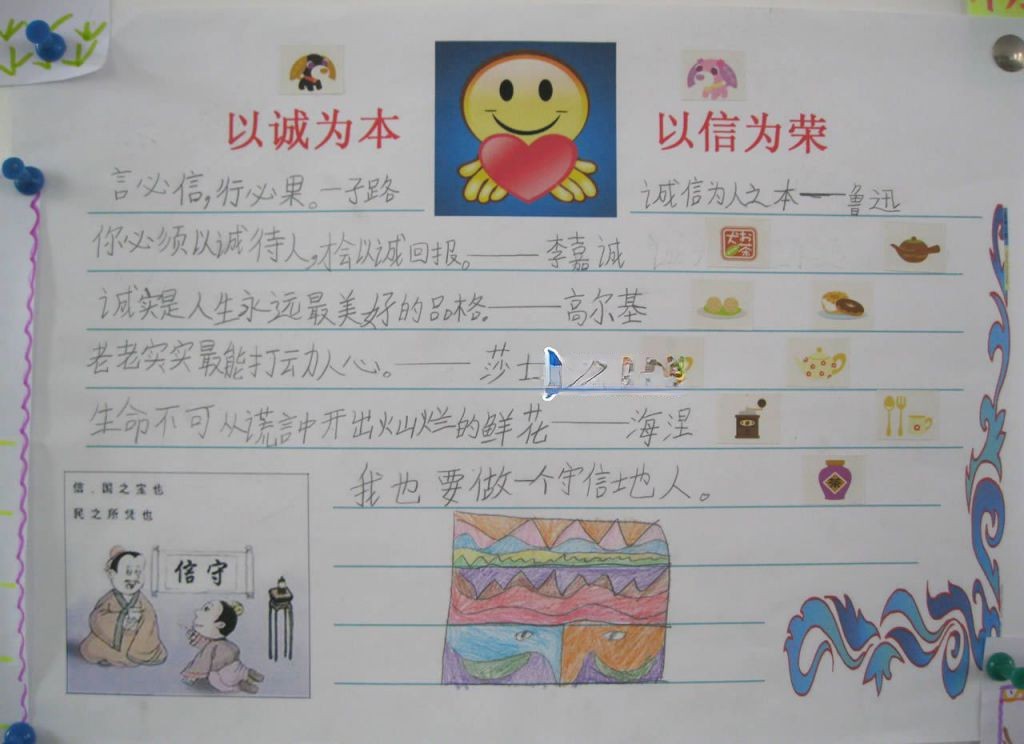 以诚为本 以信为荣
言必信,行必果。一子路 诚信为人之本——鲁迅
你必须以诚待人,才会以诚回报。——李嘉诚
诚实是人生永远最美好的品格.——高尔基
老老实实最能打动人心。——莎士
生命不可从谎言中开出灿烂的鲜花——海涅
我也要做一个守信地人。
信、国之宝也
民之所凭也
信守